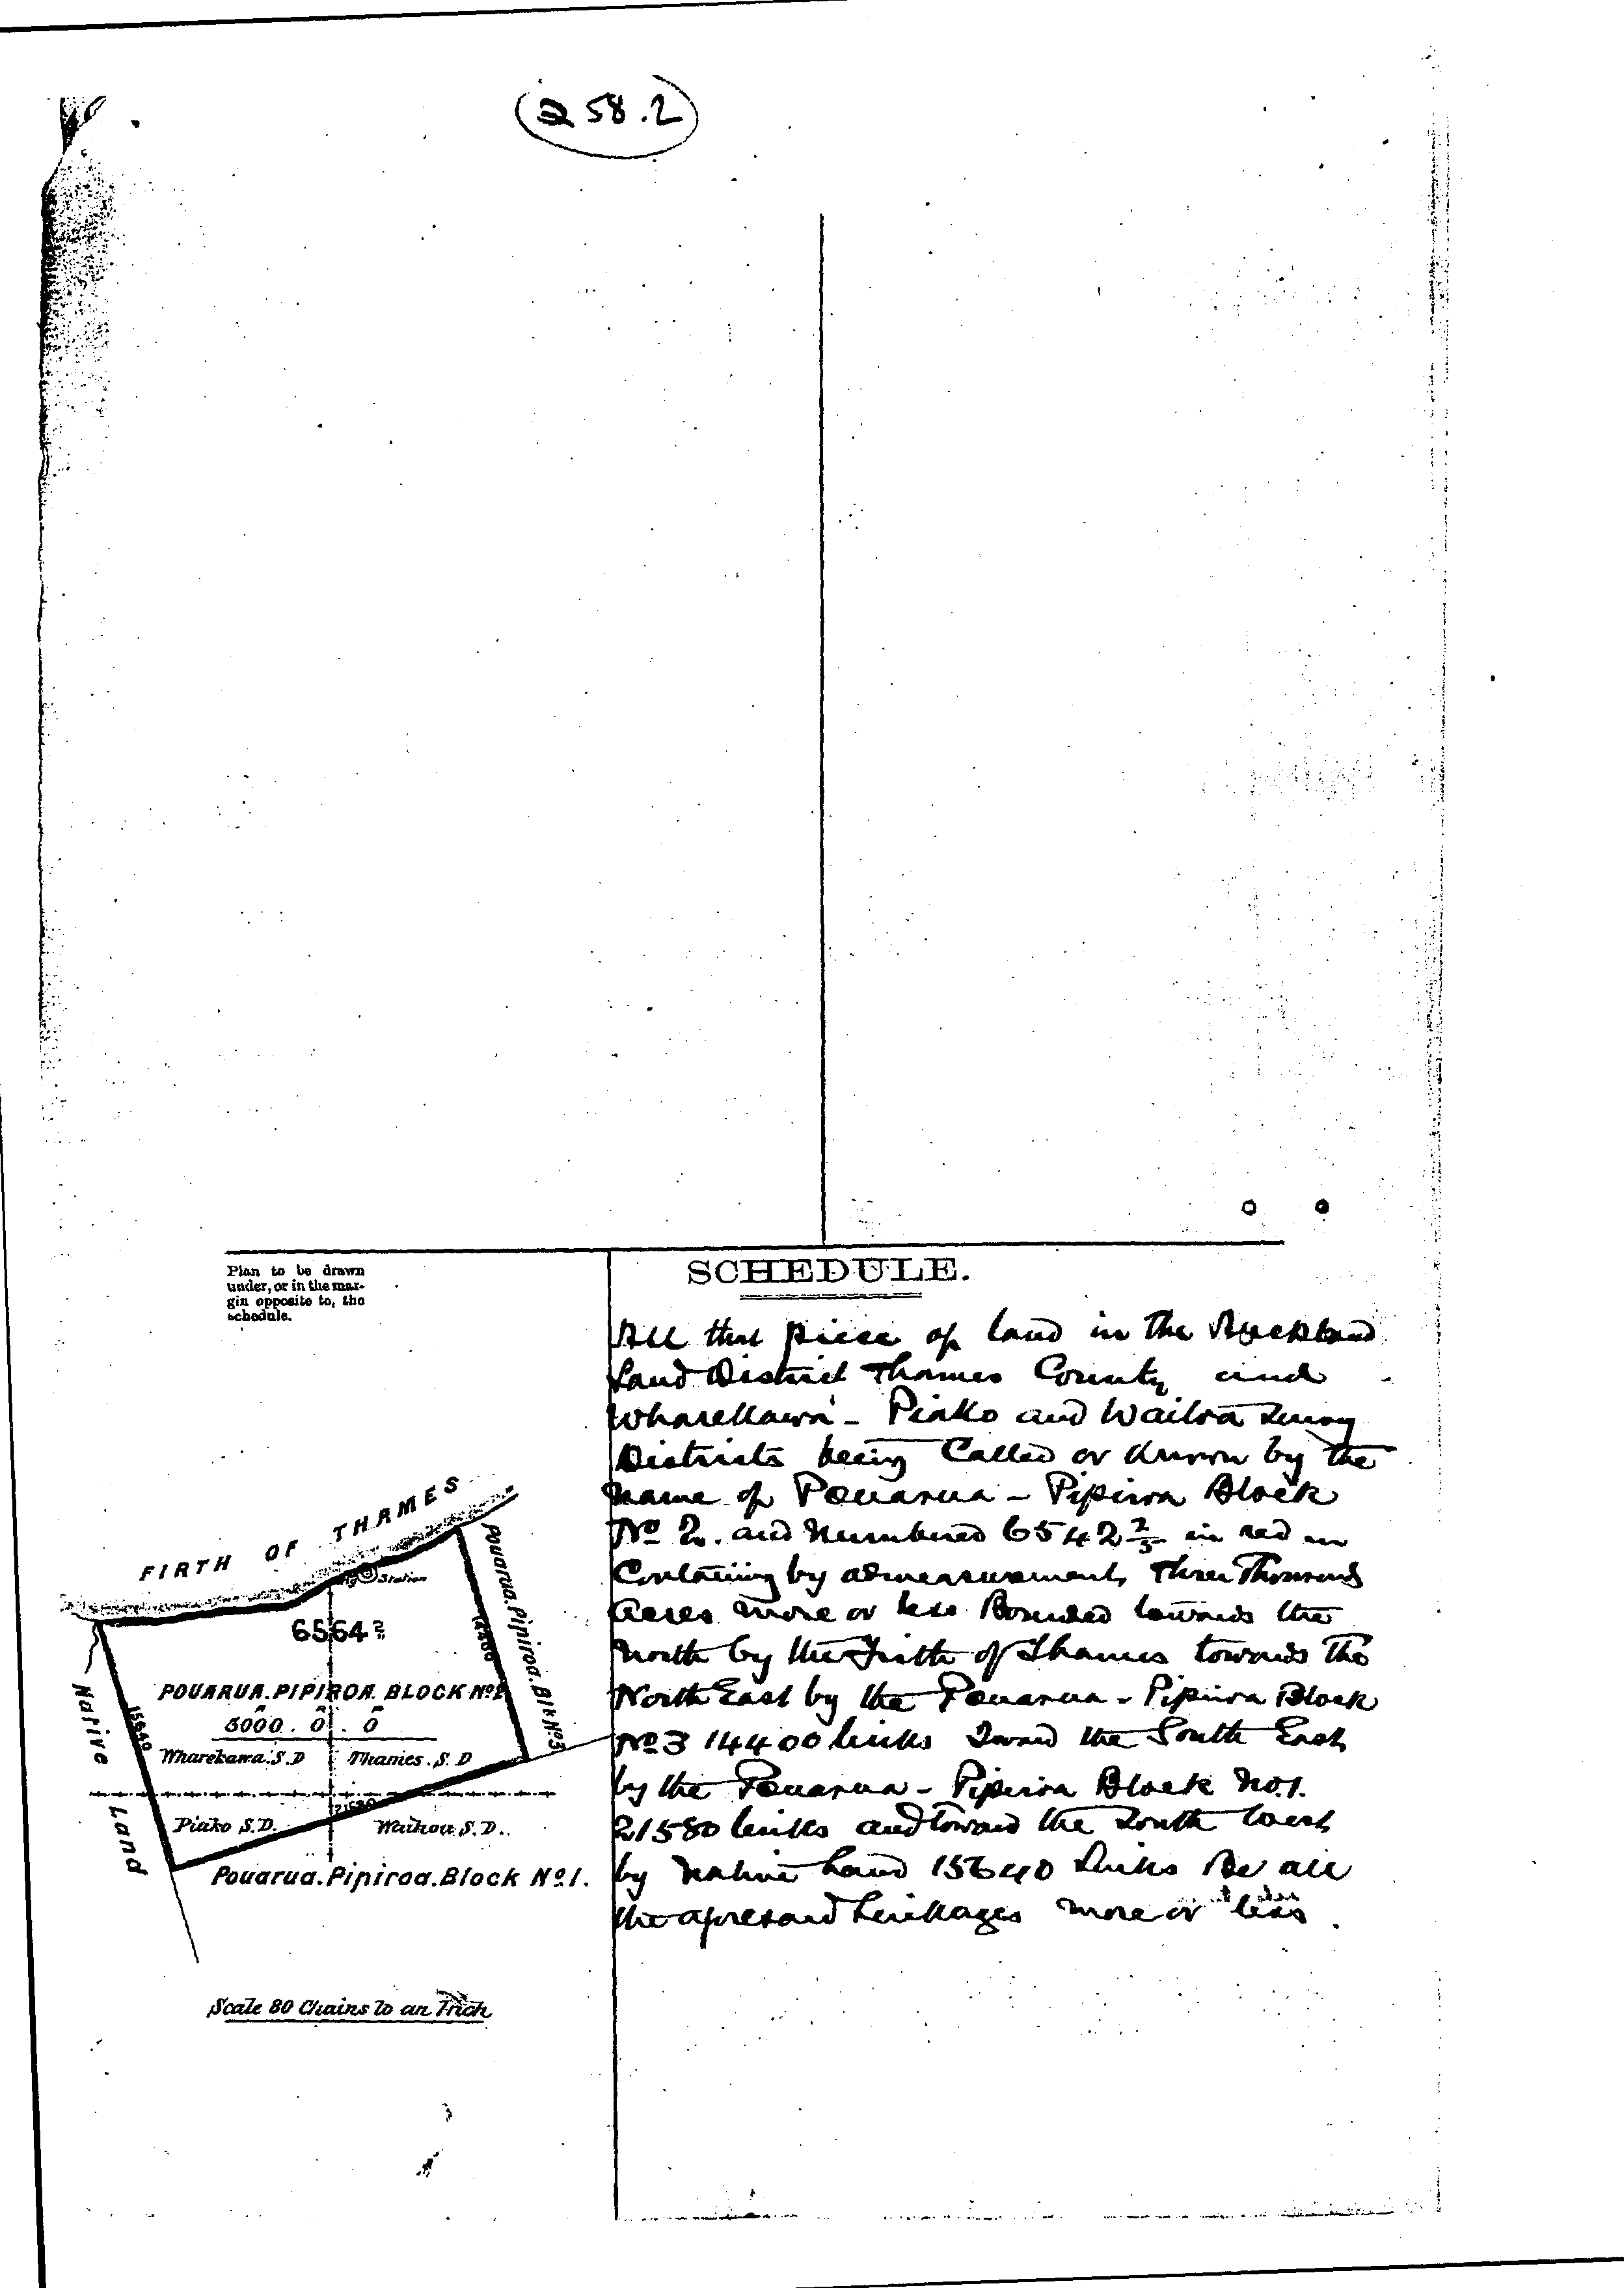 258.2
Plan to be drawn
under, or in the mar-
gin opposite to, the
schedule.
SCHEDULE.
All that piece of land in the Auckland
Land District Thames County and
Wharekawa - Piako and Waihou Survey
Districts being Called or known by the
name of Pouarua - Pipiroa Block
No 2. and Numbered 6542 in red in
Containing by admeasurement, Three Thousand
Acres more or less Bounded towards the
North by the Firth of Thames towards the
North East by the Pouarua - Pipiroa Block
No 3 14400 links Toward the South East,
by the Pouarua - Pipiroa Block No.1.
21580 links and toward the South West
by Native Land 15640 Links Be all
the aforesaid Linkages more or less.
FIRTH OF THAMES
Station
6564 2
POUARUA.PIPIROA. BLOCK No2
3000 . 0 . 0
Wharekawa.S.D
Thames.S.D
Piako S.D.
Waihou.S.D..
21580
15640
14400
Native Land
Pouarua.Pipiroa.Blk No3
Pouarua.Pipiroa.Block No.1.
Scale 80 Chains to an Inch